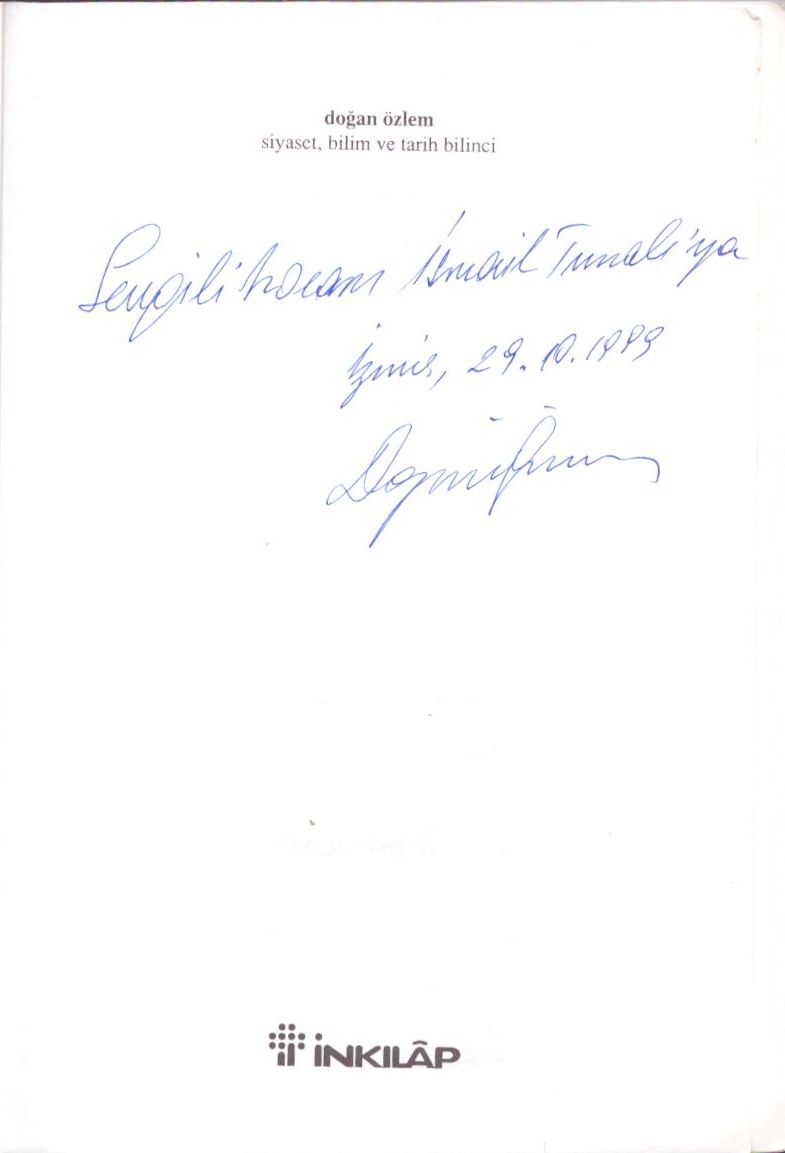 doğan özlem
siyaset, bilim ve tarih bilinci
Sevgili hocam İsmail Tunalı'ya
İzmir, 29.10.1999
Doğan Özlem
İNKILÂP